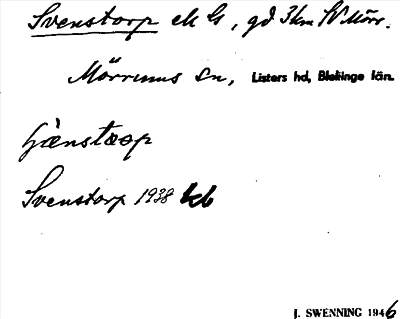 Svenstorp el G, gd 3km SV Mörr.
Mörrums sn, Listers hd, Blekinge län.
Svenstorp 1938 kb
J. SWENNING 1946